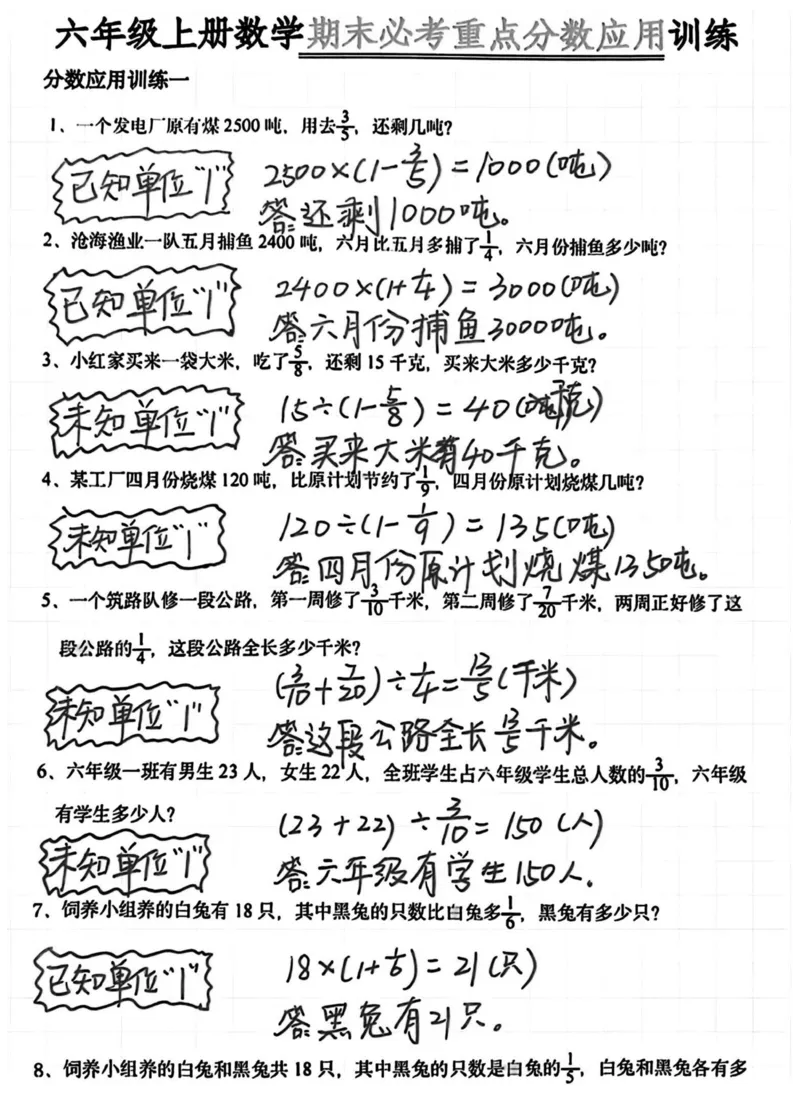 六年级上册数学期末必考重点分数应用训练
分数应用训练一
1、一个发电厂原有煤2500吨，用去3/5，还剩几吨?
已知单位"1" 2500×(1-3/5)=1000(吨)
答:还剩1000吨。
2、沧海渔业一队五月捕鱼2400吨，六月比五月多捕了1/4，六月份捕鱼多少吨?
已知单位"1" 2400×(1+1/4)=3000(吨)
答:六月份捕鱼3000吨。
3、小红家买来一袋大米，吃了5/8，还剩15千克，买来大米多少千克?
未知单位"1" 15÷(1-5/8)=40(千克)
答:买来大米有40千克。
4、某工厂四月份烧煤120吨，比原计划节约了1/9，四月份原计划烧煤几吨?
未知单位"1" 120÷(1-1/9)=135(吨)
答:四月份原计划烧煤135吨。
5、一个筑路队修一段公路，第一周修了3/10千米，第二周修了7/20千米，两周正好修了这
段公路的1/4，这段公路全长多少千米?
未知单位"1" (3/10+7/20)÷1/4=13/5(千米)
答:这段公路全长13/5千米。
6、六年级一班有男生23人，女生22人，全班学生占六年级学生总人数的3/10，六年级
有学生多少人?
未知单位"1" (23+22)÷3/10=150(人)
答:六年级有学生150人.
7、饲养小组养的白兔有18只，其中黑兔的只数比白兔多1/6，黑兔有多少只?
已知单位"1" 18×(1+1/6)=21(只)
答:黑兔有21只。
8、饲养小组养的白兔和黑兔共18只，其中黑兔的只数是白兔的1/5，白兔和黑兔各有多